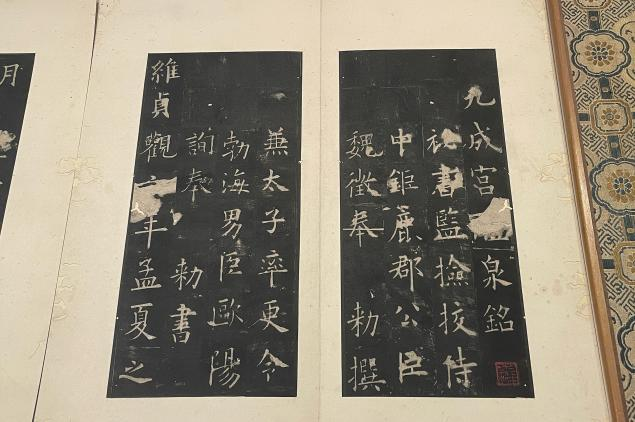 九成宮泉銘
秘書監撿挍侍
中鉅鹿郡公臣
魏徵奉 勑撰
兼太子率更令
勃海男臣歐陽
詢奉 勑書
維貞觀六年孟夏之
月